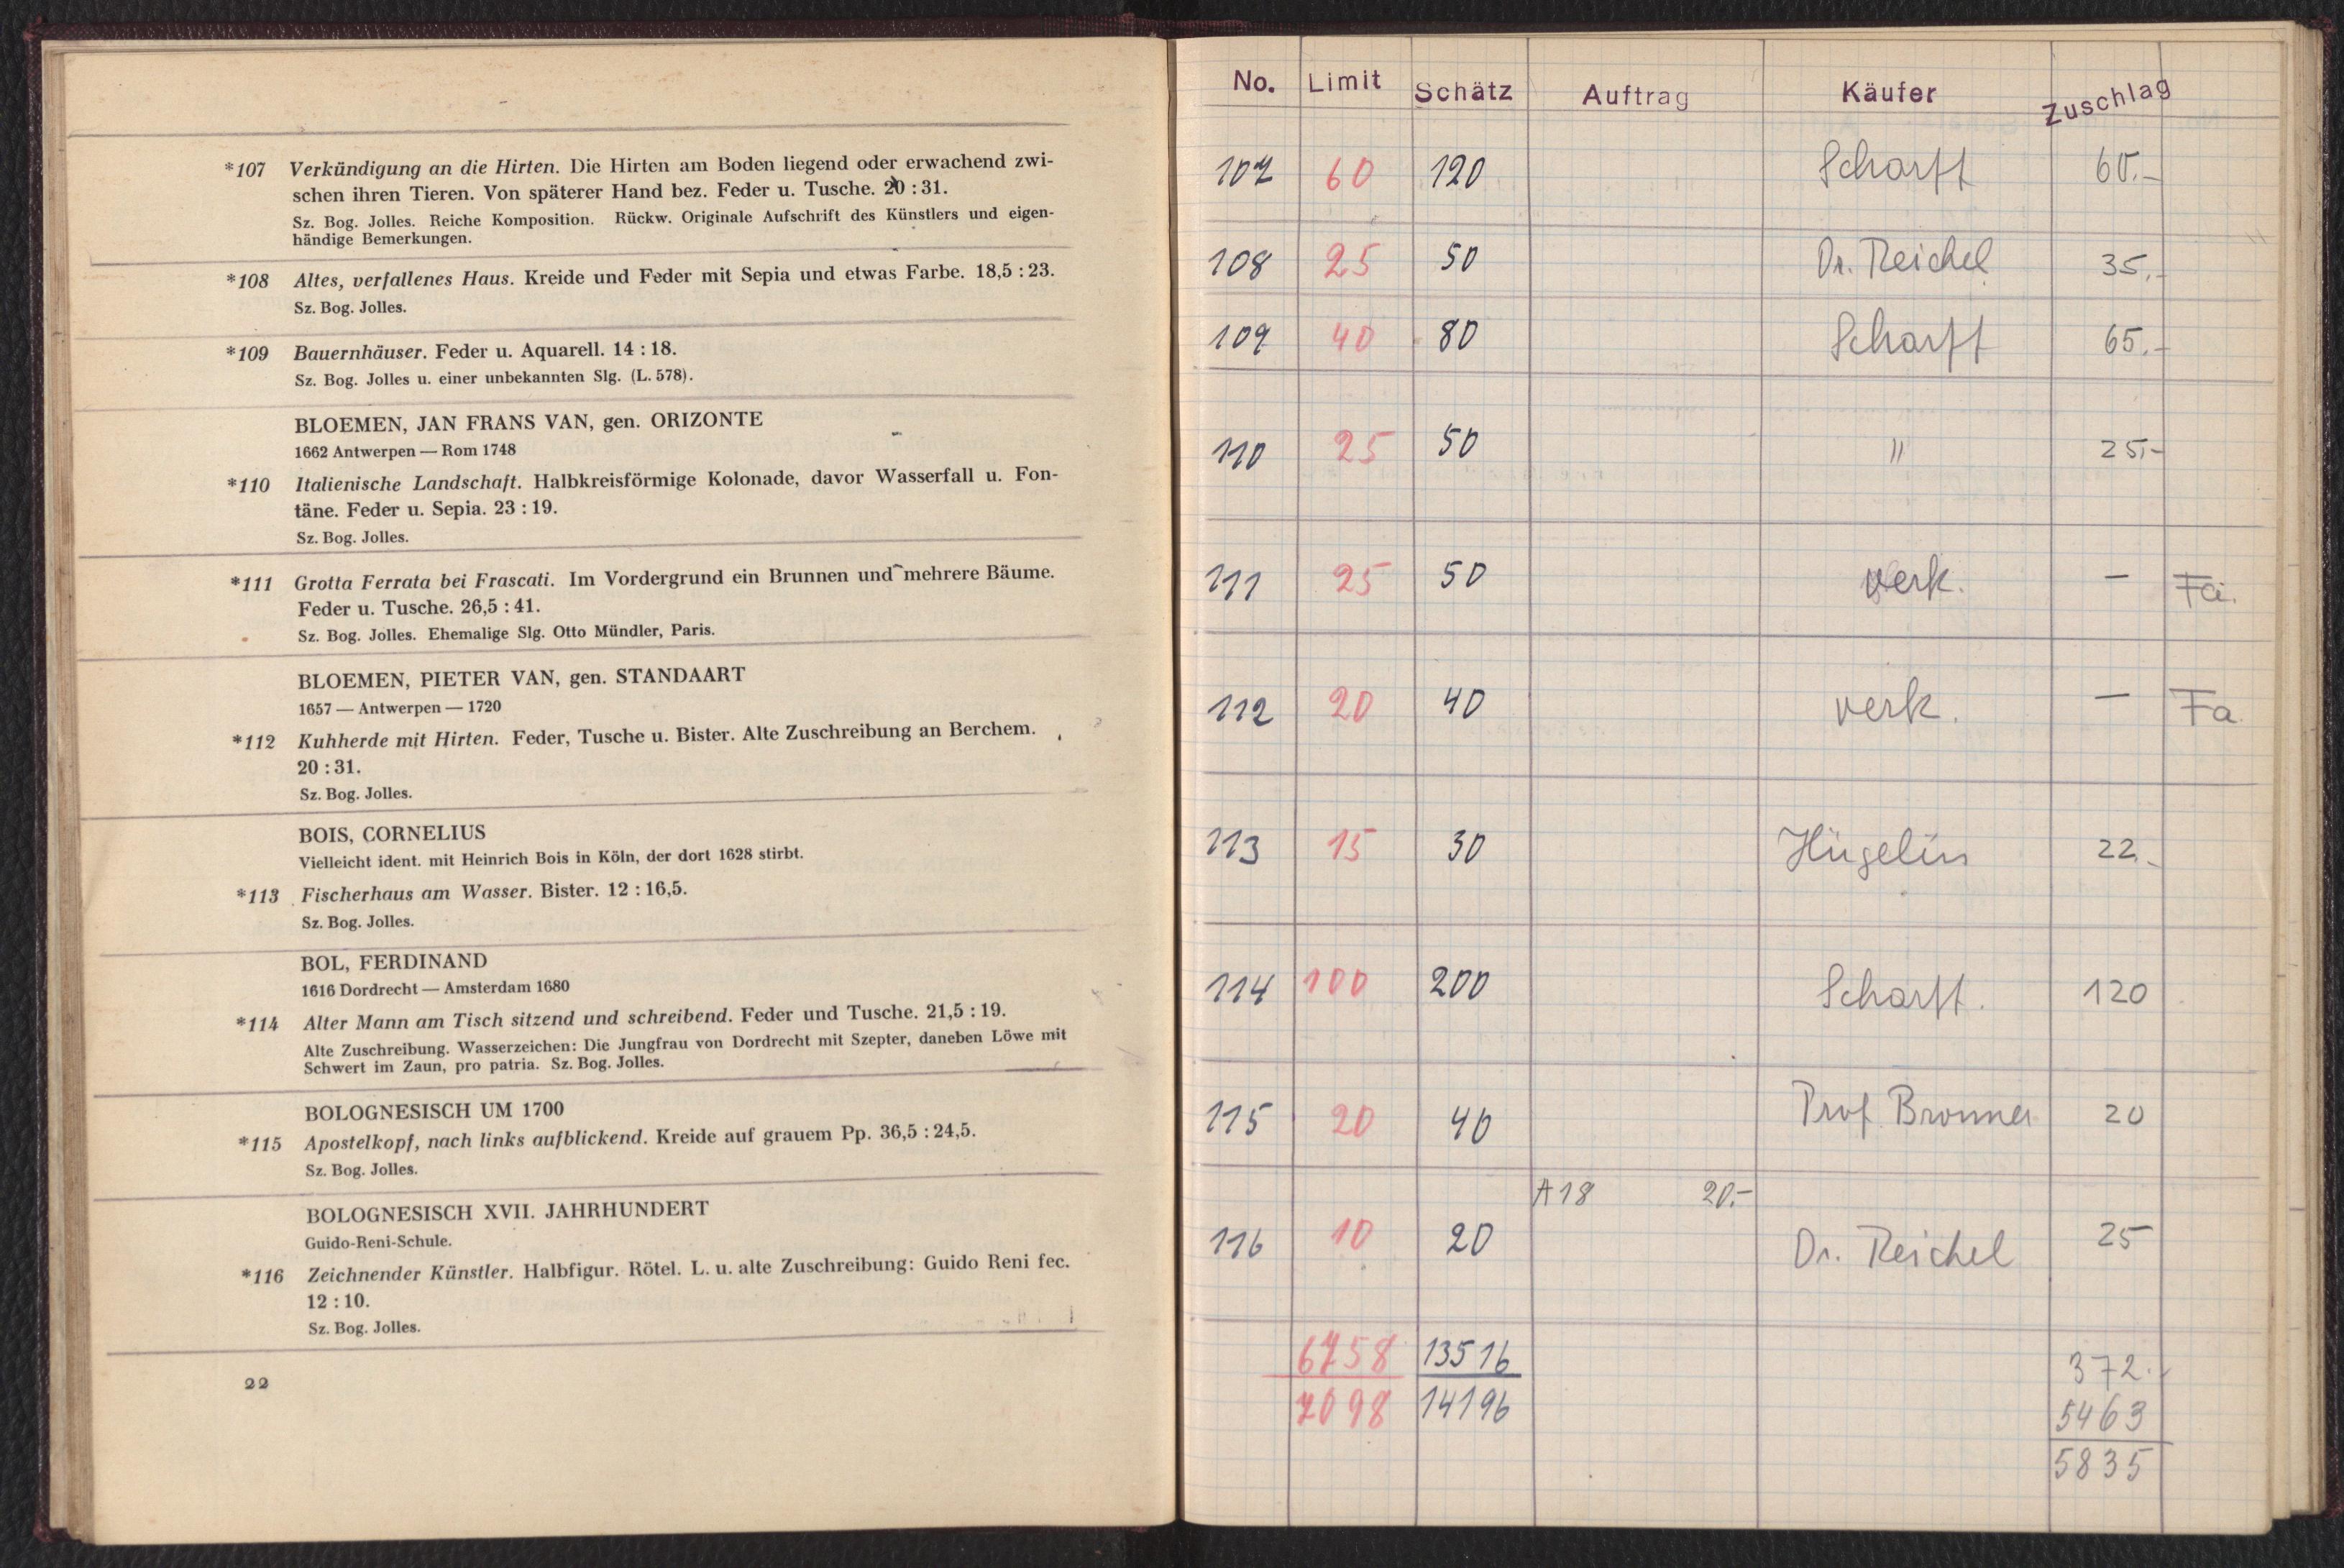 *107 Verkündigung an die Hirten. Die Hirten am Boden liegend oder erwachend zwi-
schen ihren Tieren. Von späterer Hand bez. Feder u. Tusche. 20 : 31.
Sz. Bog. Jolles. Reiche Komposition. Rückw. Originale Aufschrift des Künstlers und eigen-
händige Bemerkungen.
*108 Altes, verfallenes Haus. Kreide und Feder mit Sepia und etwas Farbe. 18,5 : 23.
Sz. Bog. Jolles.
*109 Bauernhäuser. Feder u. Aquarell. 14 : 18.
Sz. Bog. Jolles u. einer unbekannten Slg. (L. 578).
BLOEMEN, JAN FRANS VAN, gen. ORIZONTE
1662 Antwerpen — Rom 1748
*110 Italienische Landschaft. Halbkreisförmige Kolonade, davor Wasserfall u. Fon-
täne. Feder u. Sepia. 23 : 19.
Sz. Bog. Jolles.
*111 Grotta Ferrata bei Frascati. Im Vordergrund ein Brunnen und mehrere Bäume.
Feder u. Tusche. 26,5 : 41.
Sz. Bog. Jolles. Ehemalige Slg. Otto Mündler, Paris.
BLOEMEN, PIETER VAN, gen. STANDAART
1657 — Antwerpen — 1720
*112 Kuhherde mit Hirten. Feder, Tusche u. Bister. Alte Zuschreibung an Berchem.
20 : 31.
Sz. Bog. Jolles.
BOIS, CORNELIUS
Vielleicht ident. mit Heinrich Bois in Köln, der dort 1628 stirbt.
*113 Fischerhaus am Wasser. Bister. 12 : 16,5.
Sz. Bog. Jolles.
BOL, FERDINAND
1616 Dordrecht — Amsterdam 1680
*114 Alter Mann am Tisch sitzend und schreibend. Feder und Tusche. 21,5 : 19.
Alte Zuschreibung. Wasserzeichen: Die Jungfrau von Dordrecht mit Szepter, daneben Löwe mit
Schwert im Zaun, pro patria. Sz. Bog. Jolles.
BOLOGNESISCH UM 1700
*115 Apostelkopf, nach links aufblickend. Kreide auf grauem Pp. 36,5 : 24,5.
Sz. Bog. Jolles.
BOLOGNESISCH XVII. JAHRHUNDERT
Guido-Reni-Schule.
*116 Zeichnender Künstler. Halbfigur. Rötel. L. u. alte Zuschreibung: Guido Reni fec.
12 : 10.
Sz. Bog. Jolles.
22
No. Limit Schätz Auftrag Käufer Zuschlag
107 60 120 Scharff 60.-
108 25 50 Dr. Reichel 35.-
109 40 80 Scharff 65.-
110 25 50 " 25,-
111 25 50 verk. — Fa.
112 20 40 verk. — Fa.
113 15 30 Hügelin 22.-
114 100 200 Scharff. 120
115 20 40 Prof Bronner 20
A18 20.-
116 10 20 Dr. Reichel 25
6758 13516 372.-
7098 14196 5463
5835